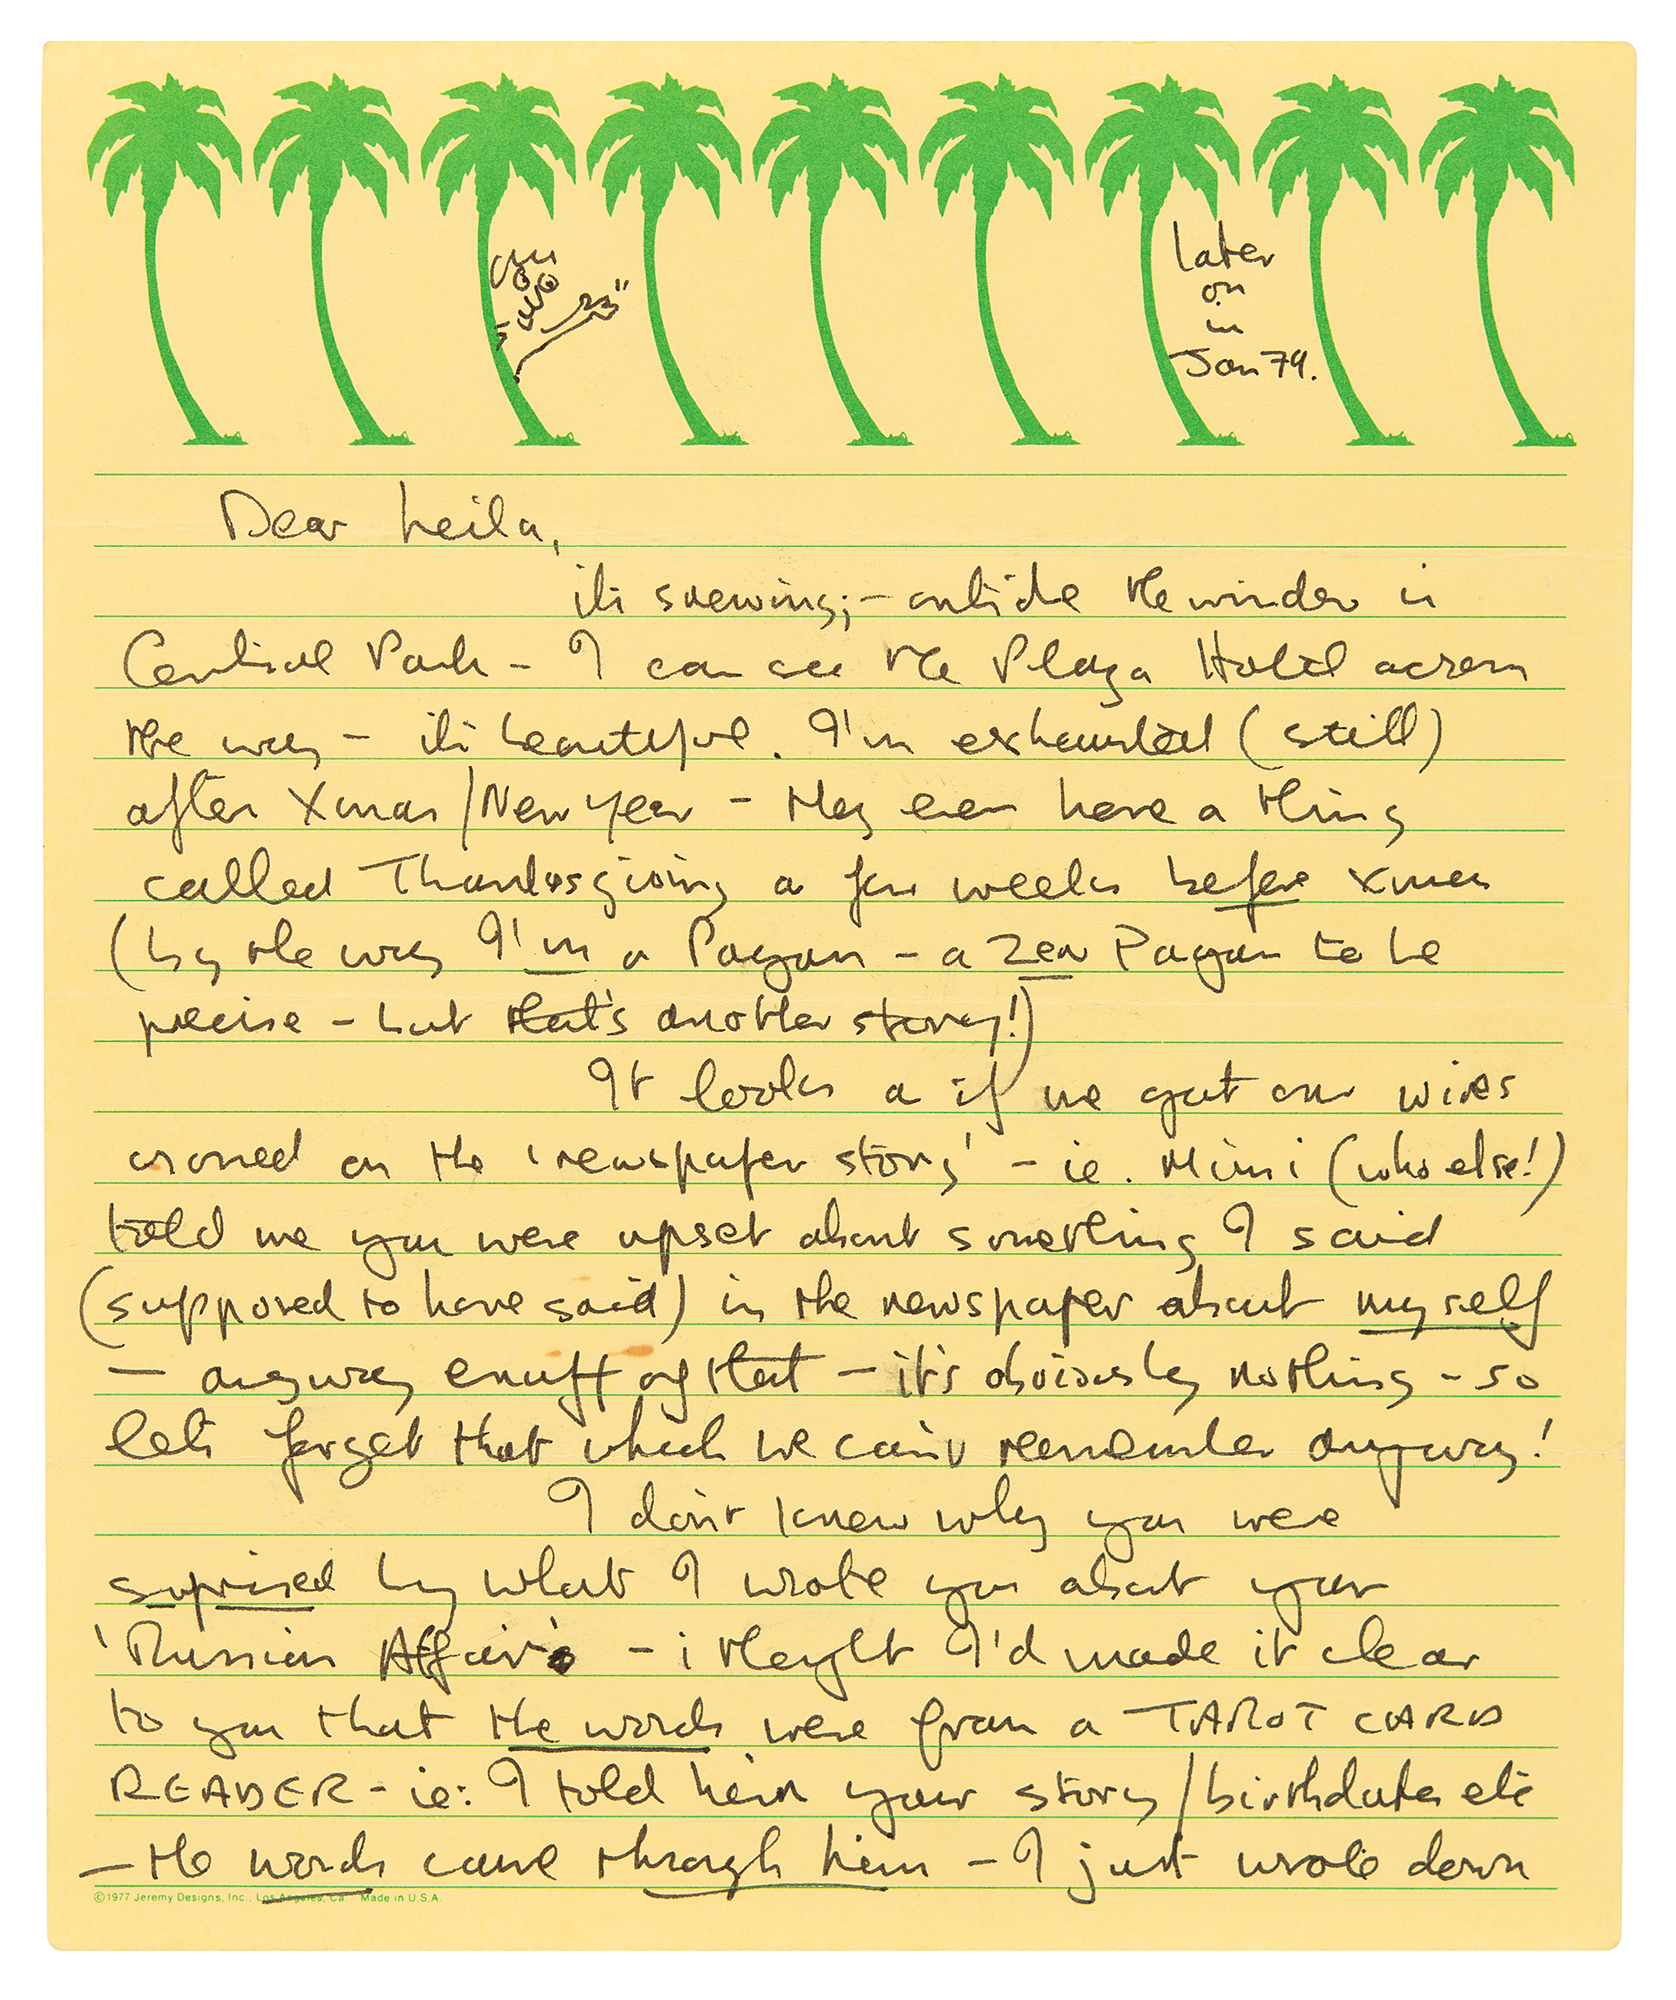 later
on
in
Jan 79.
Dear Leila,
its snewing;- outside the window is
Central Park - I can see the Plaza Hotel across
the way - its beautiful. I'm exhausted (still)
after Xmas/New Year - they even have a thing
called Thanksgiving a few weeks before xmas
(by the way I'm a Pagan - a Zen Pagan to be
precise - but that's another story!)
It looks as if we got our wires
crossed on the 'newspaper story' - ie. Mimi (who else!)
told me you were upset about something I said
(supposed to have said) in the newspaper about my self
- anyway enuff of that - it's obviously nothing - so
lets forget that which we can't remember anyway!
I don't know why you were
suprised by what I wrote you about your
'Russian Affair' - i thought I'd made it clear
to you that the words were from a TAROT CARD
READER - ie: I told him your story/birthdates etc
- the words came through him - I just wrote down
©1977 Jeremy Designs, Inc., Los Angeles, Ca. Made in U.S.A.